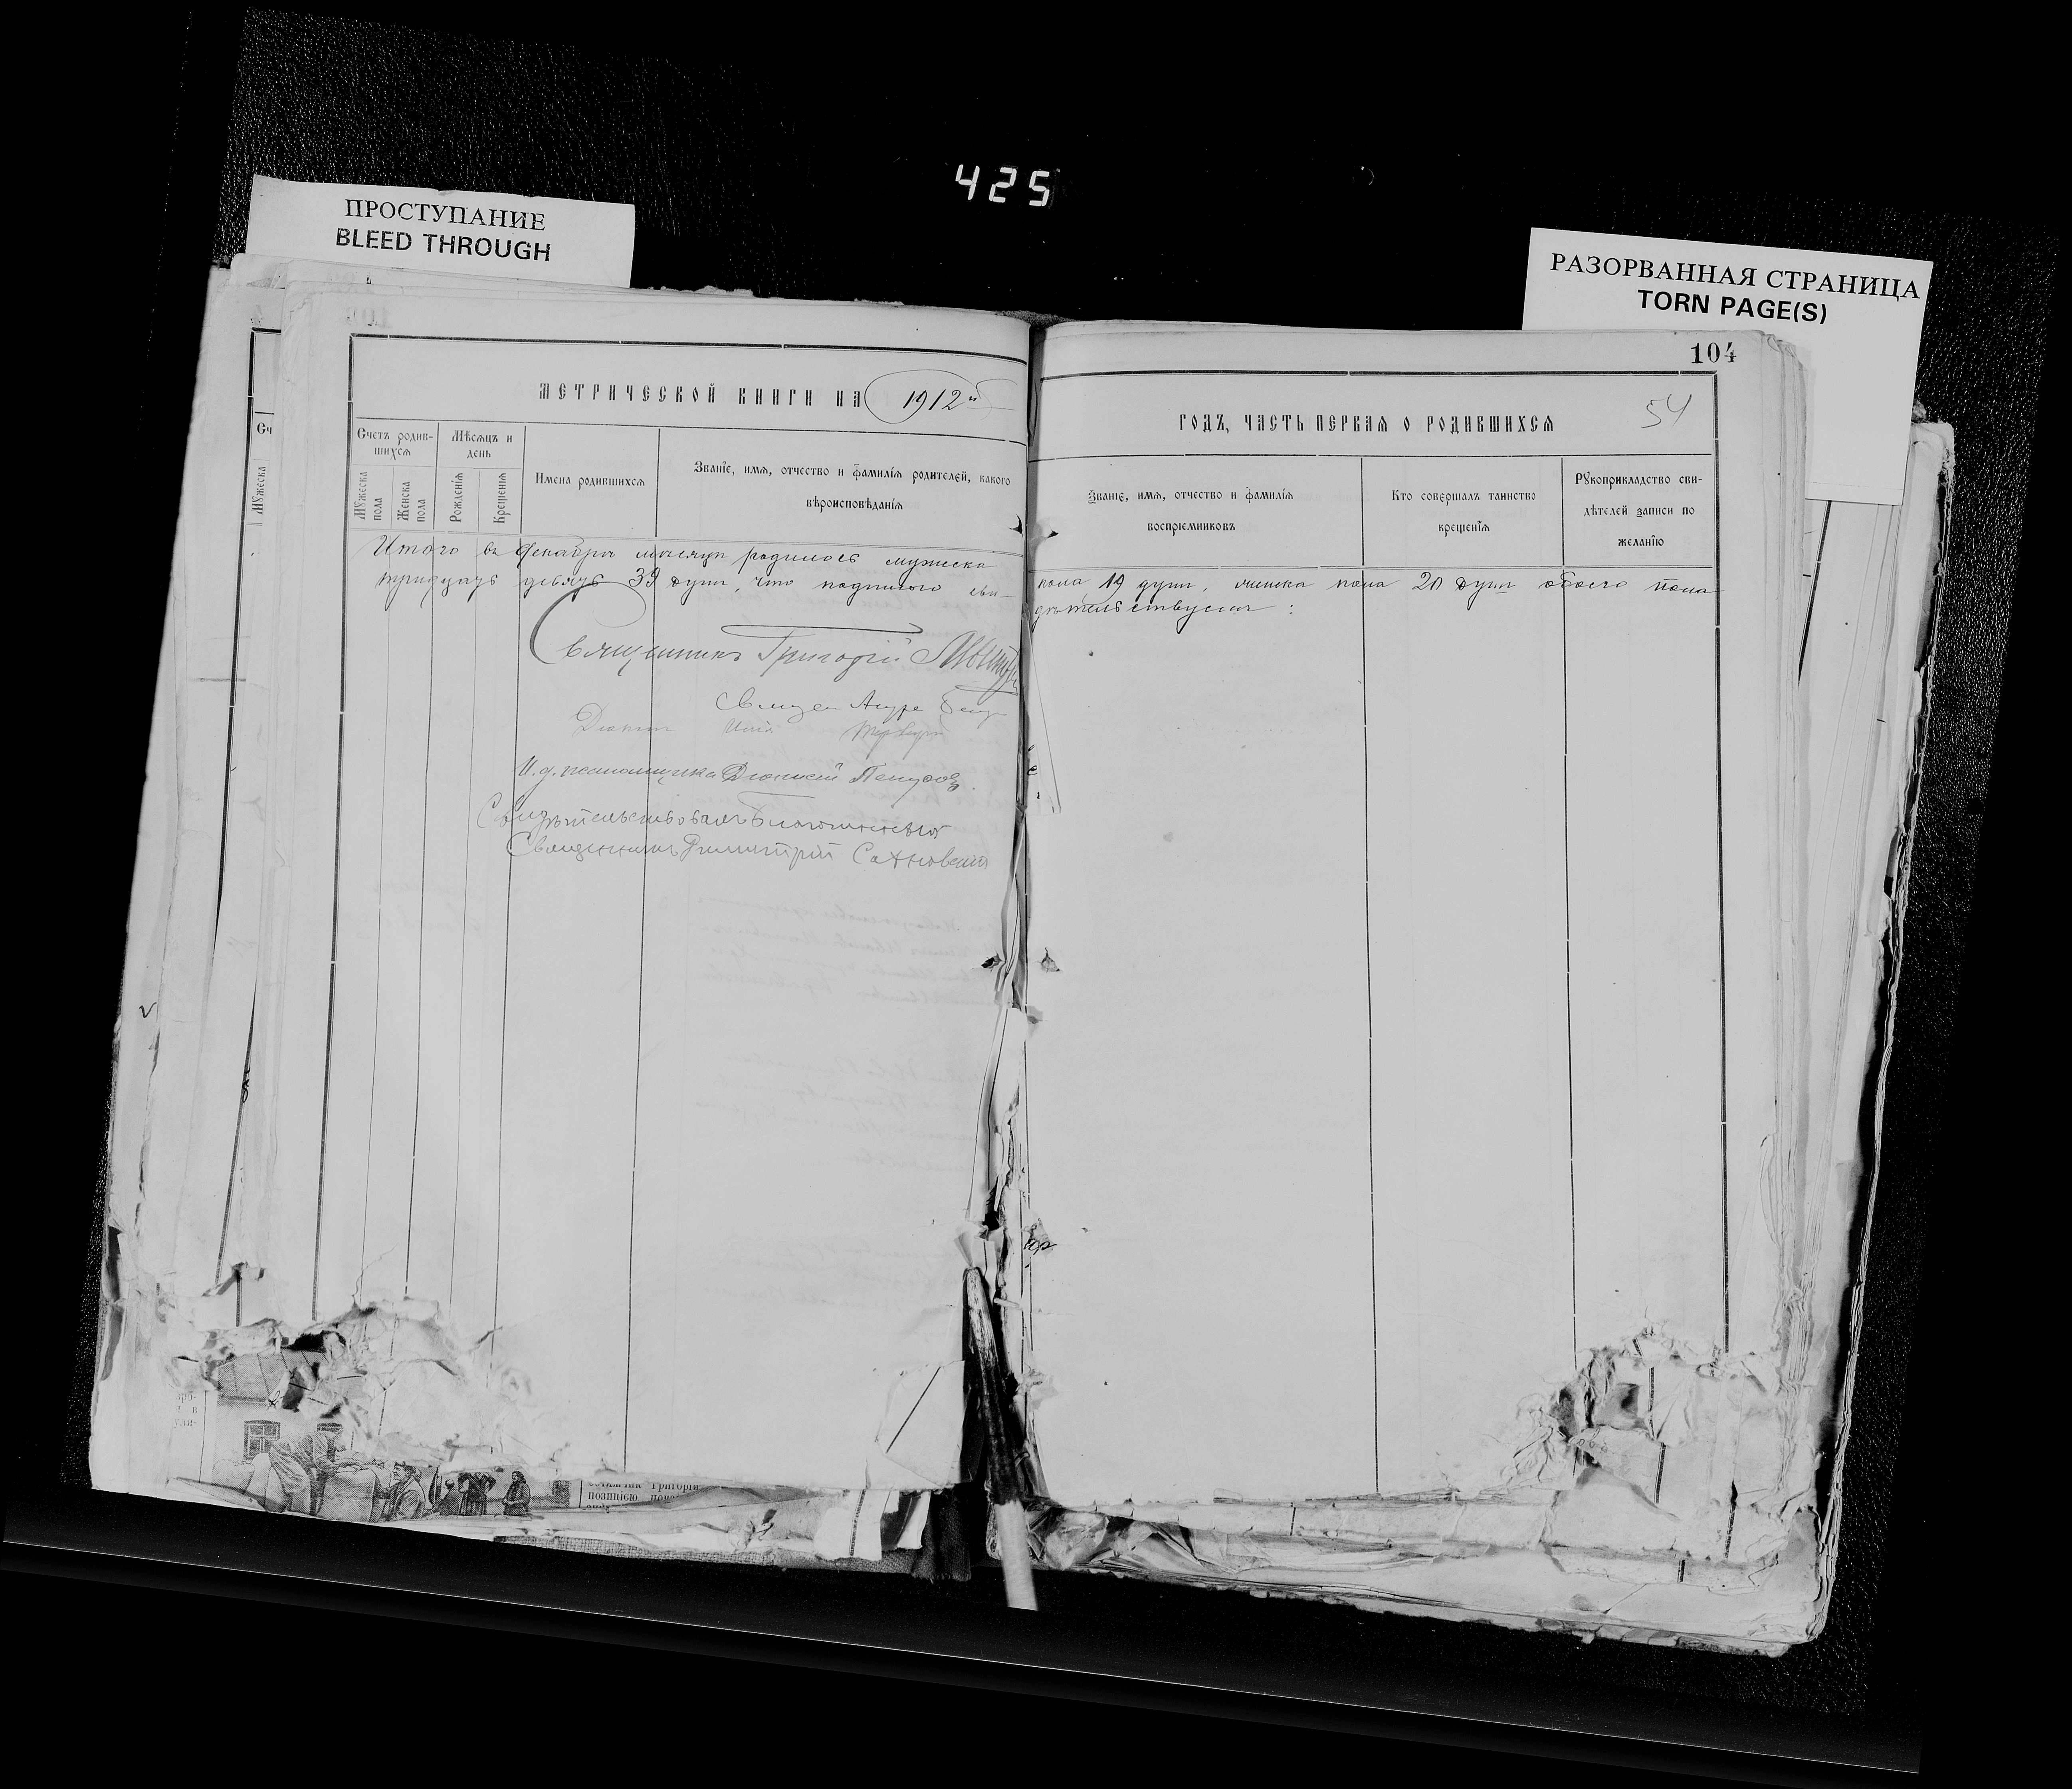 425
ПРОСТУПАНИЕ
BLEED THROUGH
РАЗОРВАННАЯ СТРАНИЦА
TORN PAGE(S)
104
54
МЕТРИЧЕСКОЙ КНИГИ НА 1912й
ГОДЪ, ЧАСТЬ ПЕРВАЯ О РОДИВШИХСЯ
Сч
Мужеска
Счетъ родив-
шихся
Мужеска
пола
Женска
пола
Мѣсяцъ и
день
Рожденія
Крещенія
Имена родившихся
Званіе, имя, отчество и фамилія родителей, какого
вѣроисповѣданія
Званіе, имя, отчество и фамилія
воспріемниковъ
Кто совершалъ таинство
крещенія
Рукоприкладство сви-
дѣтелей записи по
желанію
Итого въ Декабрѣ мѣсяцѣ родилось мужеска
пола 19 душъ, женска пола 20 душъ обоего пола
тридцать девять 39 душъ, что подписью сви-
дѣтельствуемъ:
Священникъ Григорій
Діаконъ
И.д. псаломщика Діонисій
Свидѣтельствовалъ Благочинный
Священникъ Димитрій Сахновскій
Григорія
позицією